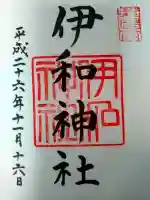 伊和神社
平成二十六年十一月十六日
伊和神社